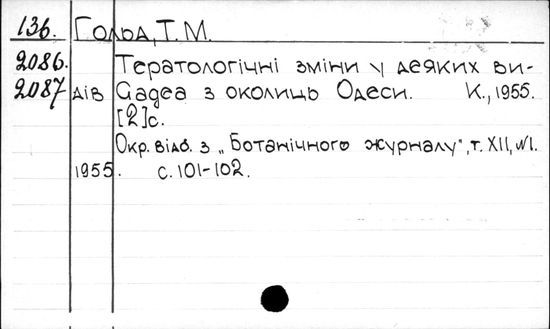 136. Гольд, Т. М.
2086. Тератологічні зміни у деяких ви-
2087 дів Gagea з околиць Одеси. К., 1955.
[2]с.
Окр. відб. з „Ботанічного журналу", т. XII, №1.
1955. с. 101-102.